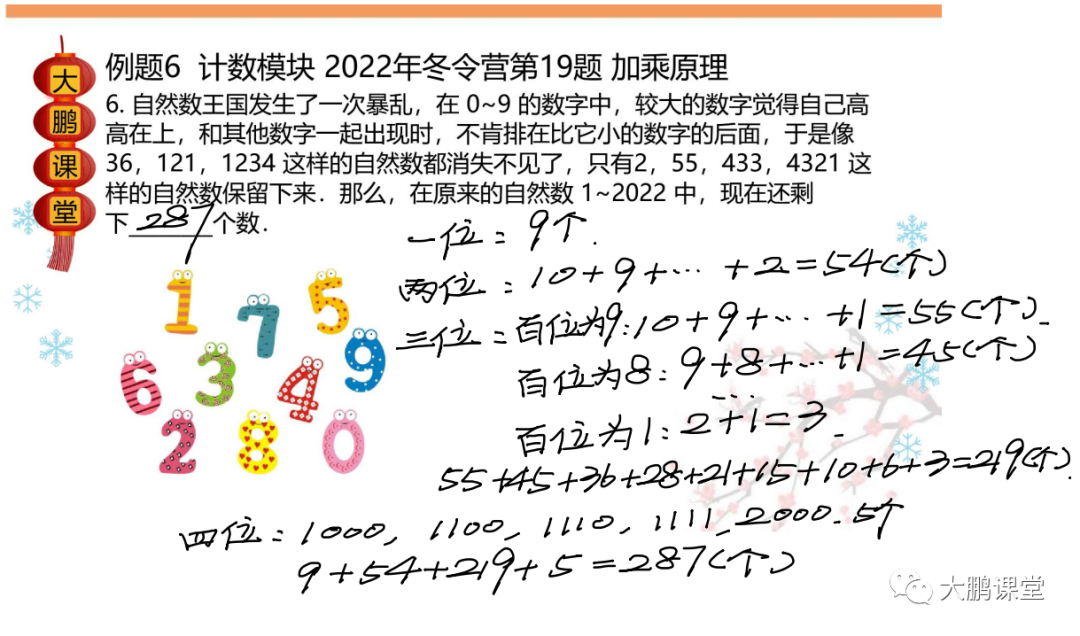 大鹏课堂
例题6 计数模块 2022年冬令营第19题 加乘原理
6. 自然数王国发生了一次暴乱，在 0~9 的数字中，较大的数字觉得自己高
高在上，和其他数字一起出现时，不肯排在比它小的数字的后面，于是像
36，121，1234 这样的自然数都消失不见了，只有2，55，433，4321 这
样的自然数保留下来．那么，在原来的自然数 1~2022 中，现在还剩
下 287 个数．
一位：9个．
两位：10+9+…+2=54(个)
三位：百位为9：10+9+…+1=55(个)．
百位为8：9+8+…+1=45(个)
…
百位为1：2+1=3．
55+45+36+28+21+15+10+6+3=219(个)．
四位：1000，1100，1110，1111，2000．5个
9+54+219+5=287(个)
1 7 5
6 3 4 9
2 8 0
大鹏课堂